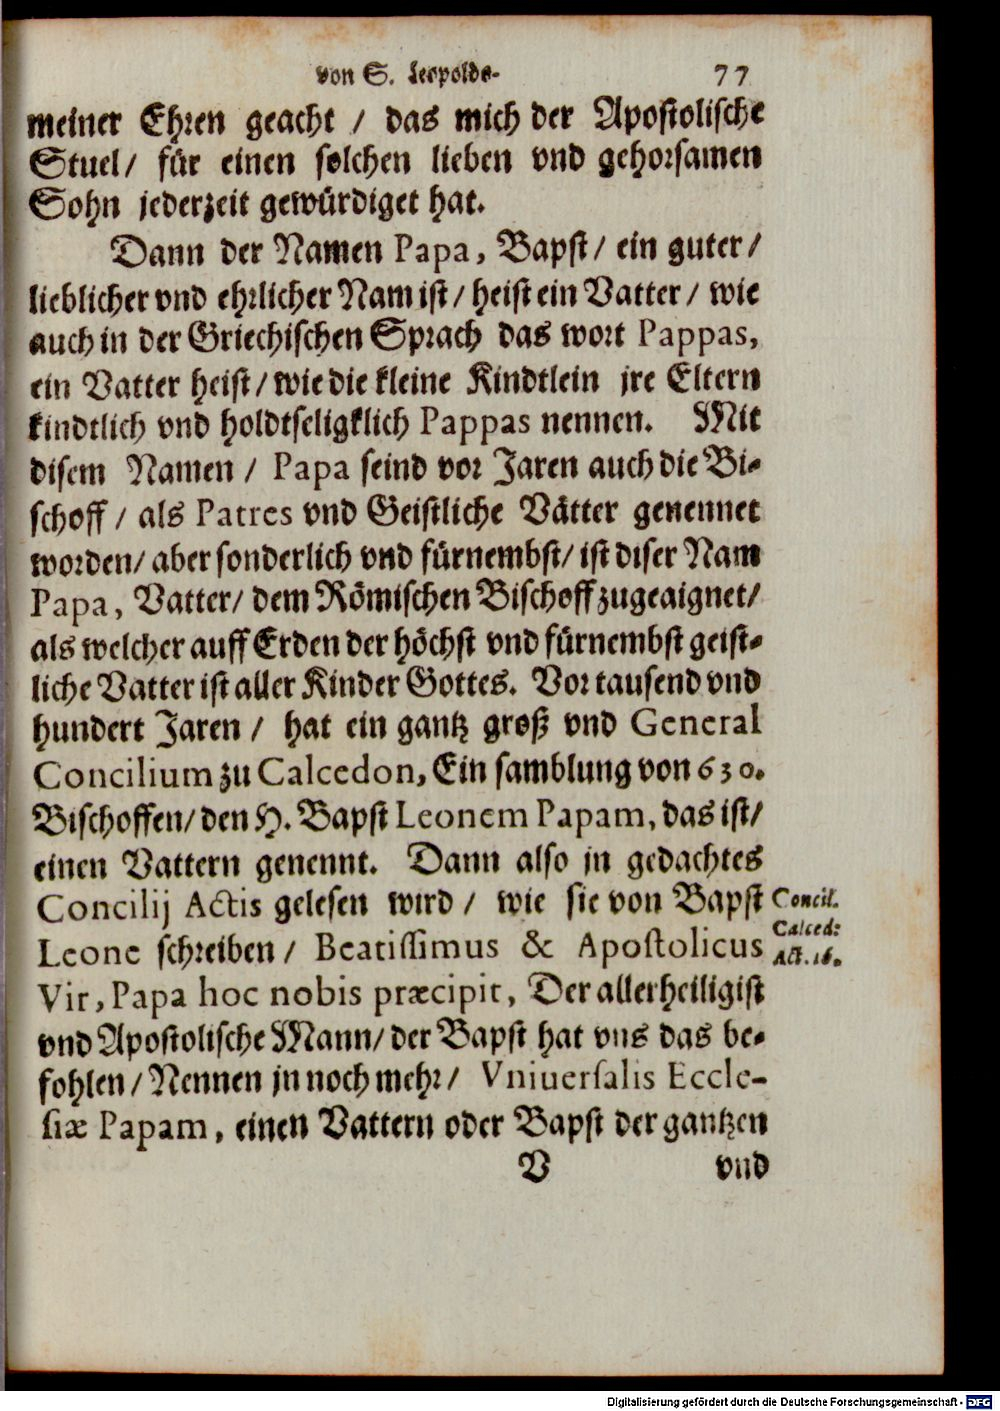 von S. Leopolde. 77
meiner Ehren geacht / das mich der Apostolische
Stuel / für einen solchen lieben vnd gehorsamen
Sohn jederzeit gewürdiget hat.
Dann der Namen Papa, Bapst / ein guter /
lieblicher vnd ehrlicher Nam ist / heist ein Vatter / wie
auch in der Griechischen Sprach das wort Pappas,
ein Vatter heist / wie die kleine Kindtlein jre Eltern
kindtlich vnd holdtseligklich Pappas nennen. Mit
disem Namen / Papa seind vor Jaren auch die Bi-
schoff / als Patres vnd Geistliche Vätter genennet
worden / aber sonderlich vnd fürnembst / ist diser Nam
Papa, Vatter / dem Römischen Bischoff zugeaignet /
als welcher auff Erden der höchst vnd fürnembst geist-
liche Vatter ist aller Kinder Gottes. Vor tausend vnd
hundert Jaren / hat ein gantz groß vnd General
Concilium zu Calcedon, Ein samblung von 630.
Bischoffen / den H. Bapst Leonem Papam, das ist /
einen Vattern genennt. Dann also jn gedachtes
Concilij Actis gelesen wird / wie sie von Bapst
Leone schreiben / Beatissimus & Apostolicus
Vir, Papa hoc nobis præcipit, Der allerheiligist
vnd Apostolische Mann / der Bapst hat vns das be-
fohlen / Nennen jn noch mehr / Vniuersalis Eccle-
siæ Papam, einen Vattern oder Bapst der gantzen
V vnd
Concil.
Calced:
Act. 16.
Digitalisierung gefördert durch die Deutsche Forschungsgemeinschaft - DFG